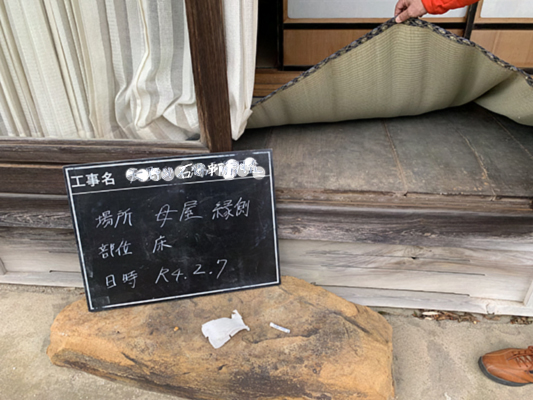 工事名 石 軒
場所 母屋 縁側
部位 床
日時 R4.2.7